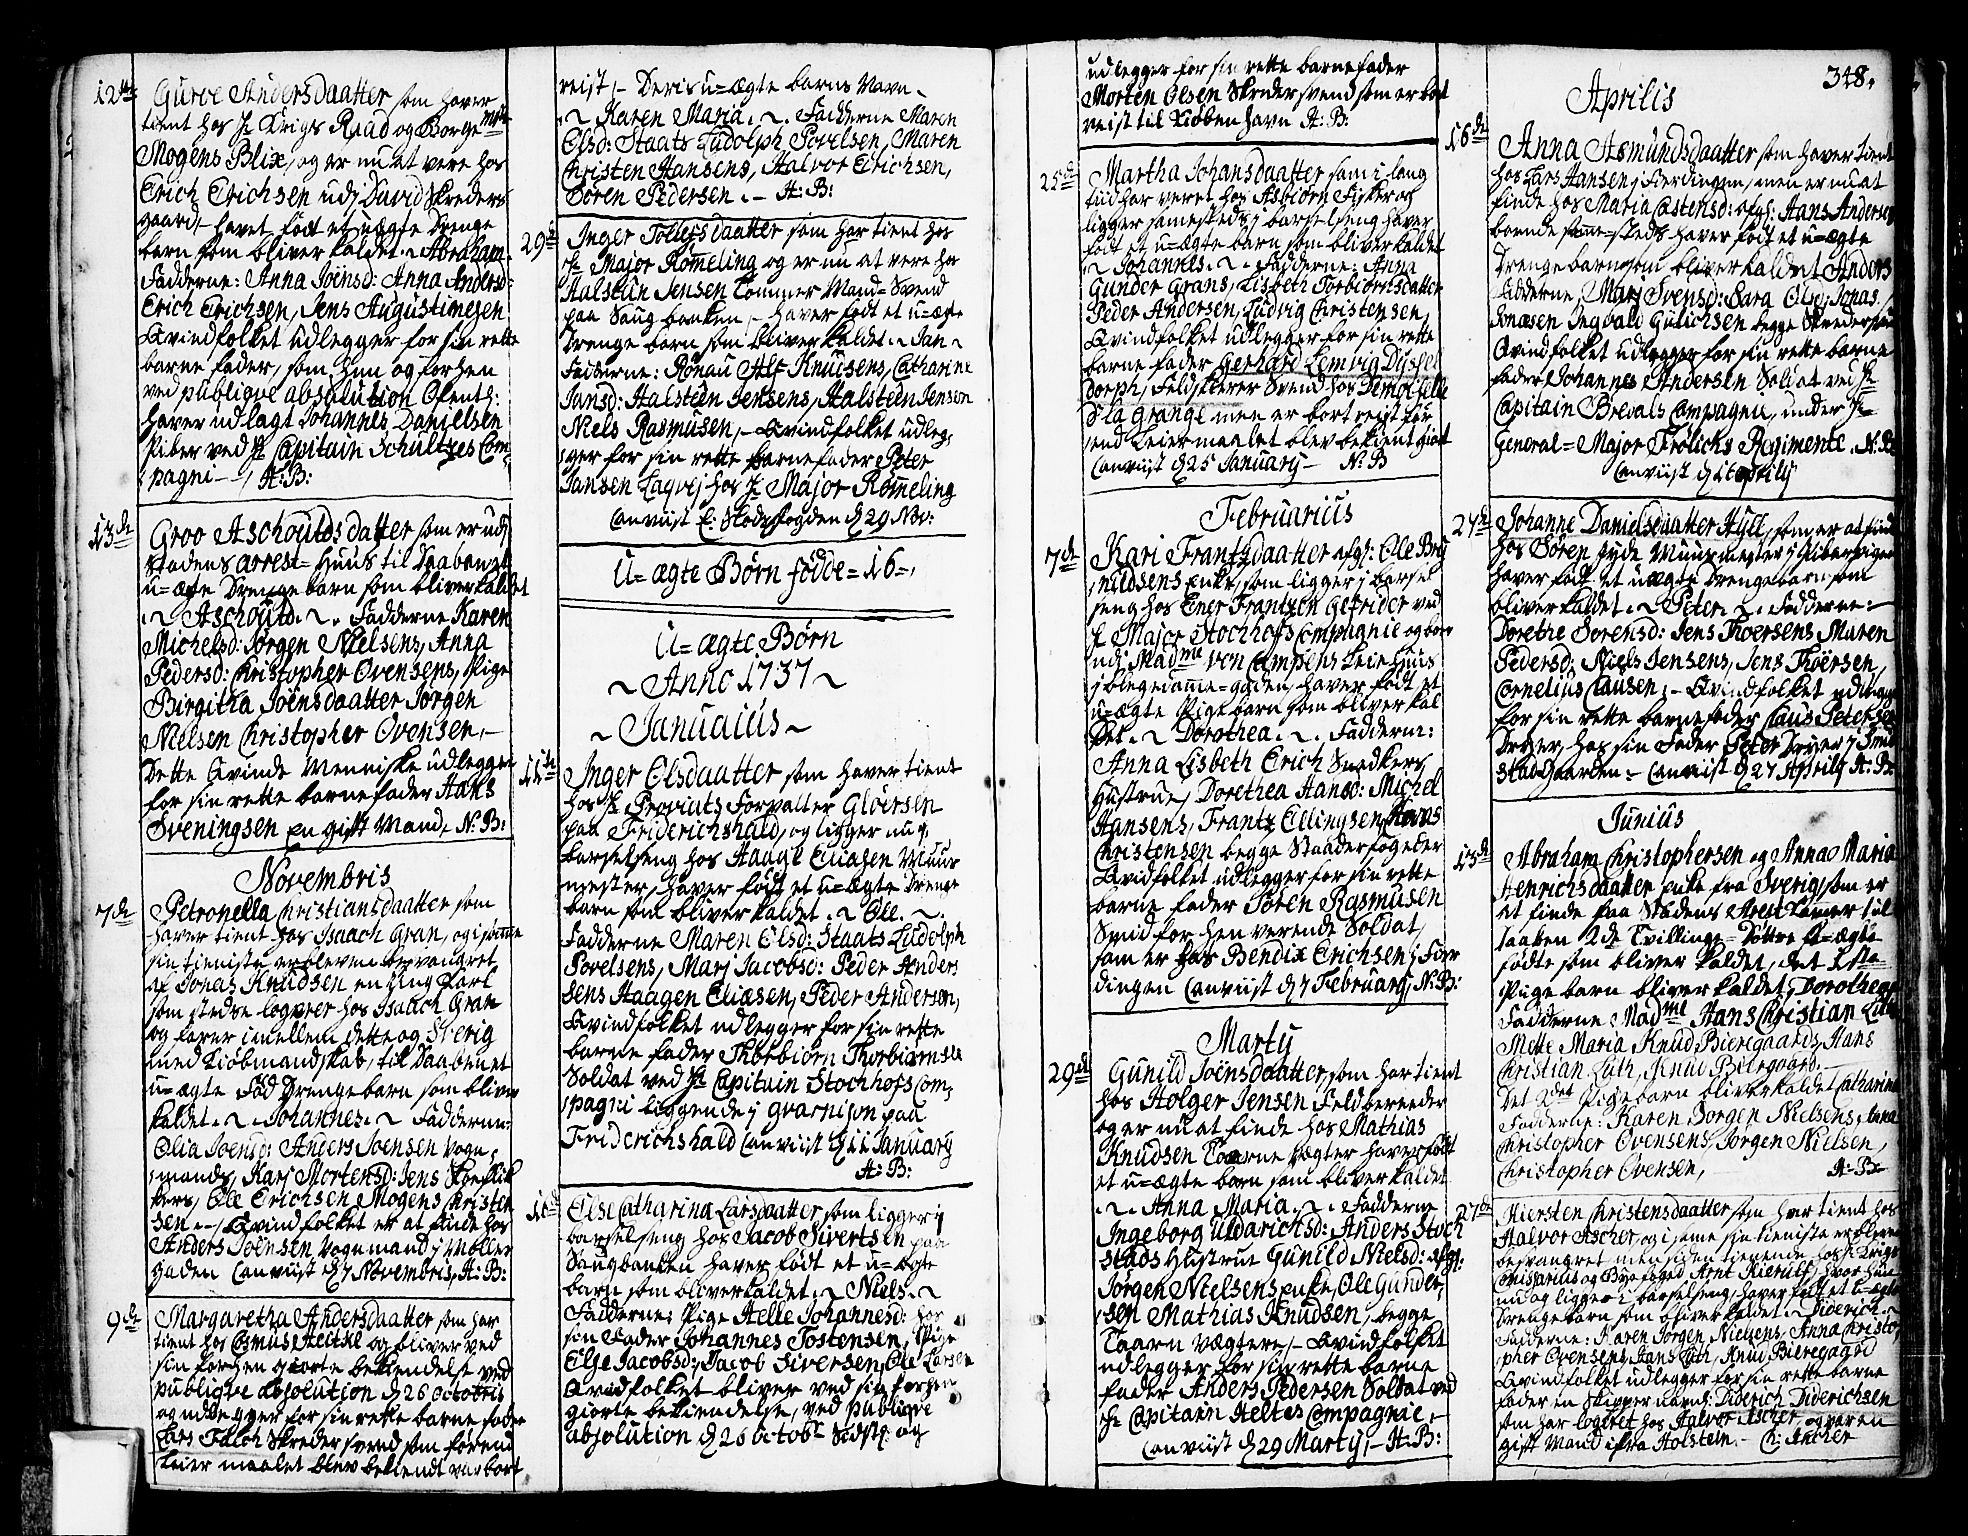 12te
Gurve Andersdaatter som haver
tient hos Hr Krigs Raad og Borgemstr
Mogens Blix, og er nu at vere hos
Erich Erichsen udj David Skreders
gaard, havet født et uægte Drenge
barn som bliver kaldet Abraham
Fadderne: Anna Joensd: Anna Andersd:
Erich Erichsen, Jens Augustinesen
Qvindfolket udlegger for sin rette
barne fader, som hun og forhen
ved publique absolution Ofentl:
haver udlagt Johannes Danielsen
Piber ved Hr Capitain Schultzes Com-
pagni - H:B:
13de
Groo Aschouldsdatter som er udj
stadens arrest=Huus til Daaben et
u=ægte Drenge barn som bliver kaldet
Aschould. Fadderne Karen
Michelsd: Jørgen Nielsens, Anna
Pedersd: Christopher Ovensens, Pige
Birgitha Joensdaatter Jørgen
Nielsen Christopher Ovensen,
Dette Qvinde Menniske udlegger
for sin rette barne fader Hans
Sveningsen en gift Mand, N:B:
Novembris
7de
Petronella Christiansdaatter som
haver tient hos Isaach Gran, og i samme
sin tieniste er bleven besvangret
af Jonas Knudsen en Ung Karl
som stedse logerer hos Isaach Gran
og farer imellem dette og Sverig
med Kiøbmandskab, til Daaben et
u=ægte Fød Drenge barn som bliver
kaldet Johannes. Fadderne:
Olia Joensd: Anders Joensen Vogn-
mands, Karj Mortensd: Jens
Ole Erichsen Mogens Christen
sen, Qvindfolket er at finde hos
Anders Joensen Vognmand j Møller
gaden Canviist d 7 Novembris, H:B:
9de
Margaretha Andersdaatter som har
tient hos Asmus Heltke og bliver ved
sin forhen giorte bekiendelse ved
publique absolution d 26 octobris
og udlegger for sin rette barne fader
Lars Falch Skreder svend som førend
Leiermaalet blev bekiendt var bort
reist, Deris u=ægte barns Navn
Karen Maria. Fadderne Maren
Olsd: Staats Ludolph Povelsen, Maren
Christen Hansens, Halvor Erichsen,
Søren Pedersen. H:B:
29de
Inger Tollefsdaatter som har tient hos
Hr Major Rømeling og er nu at vere hos
Halsten Jensen Tømmer Mand=Svend
paa Saugbanken, haver født et u=ægte
Drenge barn som bliver kaldet Jan
Fadderne: Ronau Alf Knudsens, Catharine
Jansd: Halsteen Jensens, Halsteen Jensen
Niels Rasmusen, Qvindfolket udleg-
ger for sin rette barne fader Peter
Jansen Laqvej hos Hr Major Rømeling
Canviist f: Stadsfogden d 29 Nov:
U=ægte Børn fødde=16=
U=ægte Børn
Anno 1737
Januarius
11te
Inger Olsdaatter som haver tient
hos Hr Proviants Forvalter Gløersen
paa Friderichshald, og ligger nu j
barselseng hos Haagen Eliasen Muur
mester, haver født et u=ægte Drenge
barn som bliver kaldet Ole.
Fadderne Maren Olsd: Staats Ludolph
Povelsens, Marj Jacobsd: Peder Anders
sens Haagen Eliasen, Peder Andersen,
Qvindfolket udlegger for sin rette
barne fader Thorbiørn Thorbiørnsen
Soldat ved Hr Capitain Stochhofs Com-
pagni liggende j Gvarnison paa
Friderichshald Canviist d 11 January
H:B:
16de
Else Catharina Larsdaatter som ligger j
barselseng hos Jacob Sivertsen paa
Saugbanken haver født et u=ægte
barn som bliver kaldet Niels
Fadderne: Pige Helle Johannesd: hos
sin Fader Johannes Tostensen, Pige
Else Jacobsd: Jacob Siversen, Ole Larsen
Qvindfolket bliver ved sin forhen
giorte bekiendelse, ved publique
absolution d 26 octobr Sidstl. og
udlegger for sin rette barnefader
Morten Olsen Skreder svend som er bort
reist til Kiøbenhavn H:B:
25de
Martha Johansdaatter som i lang
tiid har veret hos Asbiørn Fisker og
ligger sammesteds j barselseng haver
født et u=ægte barn som bliver kaldet
Johannes. Fadderne: Anna
Gunder Grans, Lisbeth Torbiørnsdatter
Peder Andersen, Ludvig Christensen,
Qvindfolket udlegger for sin rette
barne fader Gerhard Lemvig Dyssel
dorph, Feldskierer Svend hos Demoiselle
D'la Grange men er bort reist før
end Leiermaalet blev bekient giort
Canviist d 25 January N:B
Februarius
7de
Kari Frantzdaatter afg: Ole Bry
nildsens enke, som ligger j barsel
seng hos Ener Frantzen Gefrider ved
Hr Major Stochhofs Compagnie og boer
udj Madme von Campens Leie Huus
j blegedamme=gaden, haver født et
u=ægte Pige barn som bliver kal
det. Dorothea. Fadderne:
Anna Lisbeth Erich Snedkers
Hustrue, Dorethea Hansd: Michel
Hansens, Frantz Ellingsen, Hans
Christensen begge Staaderfogeder
Qvindfolket udlegger for sin rette
barne fader Søren Rasmusen
Smid for hen verende Soldat,
som er hos Bendix Erichsen j Fier
dingen Canviist d 7 February, N:B:
Martij
29de
Gunild Joensdaatter, som har tient
hos Holger Jensen Feldbereeder
og er nu at finde hos Mathias
Knudsen Taarne Vægter haver født
et u=ægte barn som bliver kaldet
Anna Maria. Fadderne
Ingeborg Uldarichsd: Anders Stoch
stads Hustrue Gunild Nielsd: afg:
Jørgen Nielsens enke, Ole Gunder-
sen Mathias Knudsen, begge
Taarn Vægtere, Qvindfolket
udlegger for sin rette barne
fader Anders Pedersen Soldat ved
Hr Capitain Heltes Compagnie,
Canviist d 29 Martij, H:B:
348.
Aprilis
16de
Anna Asmundsdaatter som haver tient
hos Lars Hansen j Fierdingen, men er nu at
finde hos Maria Castensd: afg: Hans Andersen
boende samesteds haver født et u=ægte
Drengebarn som bliver kaldet Anders
Fadderne, Marj Svensd: Sara Olsd: Jonas
Jonæsen Ingvald Gulichsen begge Skreder svend
Qvindfolket udlegger for sin rette barne
fader Johannes Andersen Soldat ved Hr
Capitain Brevals Compagnie, under Hr
General=Major Frølichs Regimente. N:B:
Canviist d 16 Aprilij
27de
Johanne Danielsdaatter Hyll, som er at finde
hos Søren Muurmester j
haver født et uægte Drengebarn som
bliver kaldet Peter. Fadderne:
Dorethe Sørensd: Jens Thoersens Maren
Pedersd: Niels Jensens, Jens Thoersen,
Cornelius Clausen, Qvindfolket udlegger
for sin rette barnefader Claus Petersen
Dreyer, hos sin Fader Peter Dreyer j Smed
stad Gaarden. Canviist d 27 Aprilij H:B:
Junius
13de
Abraham Christophersen og Anna Maria
Henrichsdaatter enke fra Sverig, som er
at finde paa Stadens Arest Kammer til
Daaben 2de Tvillinge=Døttre U=ægte
fødte som bliver kaldet, det 1ste
Pige barn bliver kaldet, Dorothea
Fadderne Madme Hans Christian Luth
Mette Maria Knud Bieregaards, Hans
Christian Luth, Knud Bieregaard.
Det 2det Pige barn bliver kaldet Catharina
Fadderne: Karen Jørgen Nielsens, Anna
Christopher Ovensens, Jørgen Nielsen,
Christopher Ovensen, H:B:
27de
Kiersten Christensdaatter som har tient hos
Halvor Ascher, og i same sin tieniste er bleven
besvangret men siden tienende hos Hr Krigs
Comissarius og Byefoged Arnt Kierulf, hvor hun
nu og ligger i barselseng, haver født et U=ægte
Drengebarn som bliver kaldet Diderich.
Fadderne: Karen Jørgen Nielsens, Anna Christo
pher Ovensens, Hans Luth, Knud Bieregaard
Qvindfolket udlegger for sin rette barne
fader en Skipper navnl: Diderich Diderichsen
som har logeret hos Halvor Ascher, og er en
gift Mand ifra Holsteen. H: Ancher